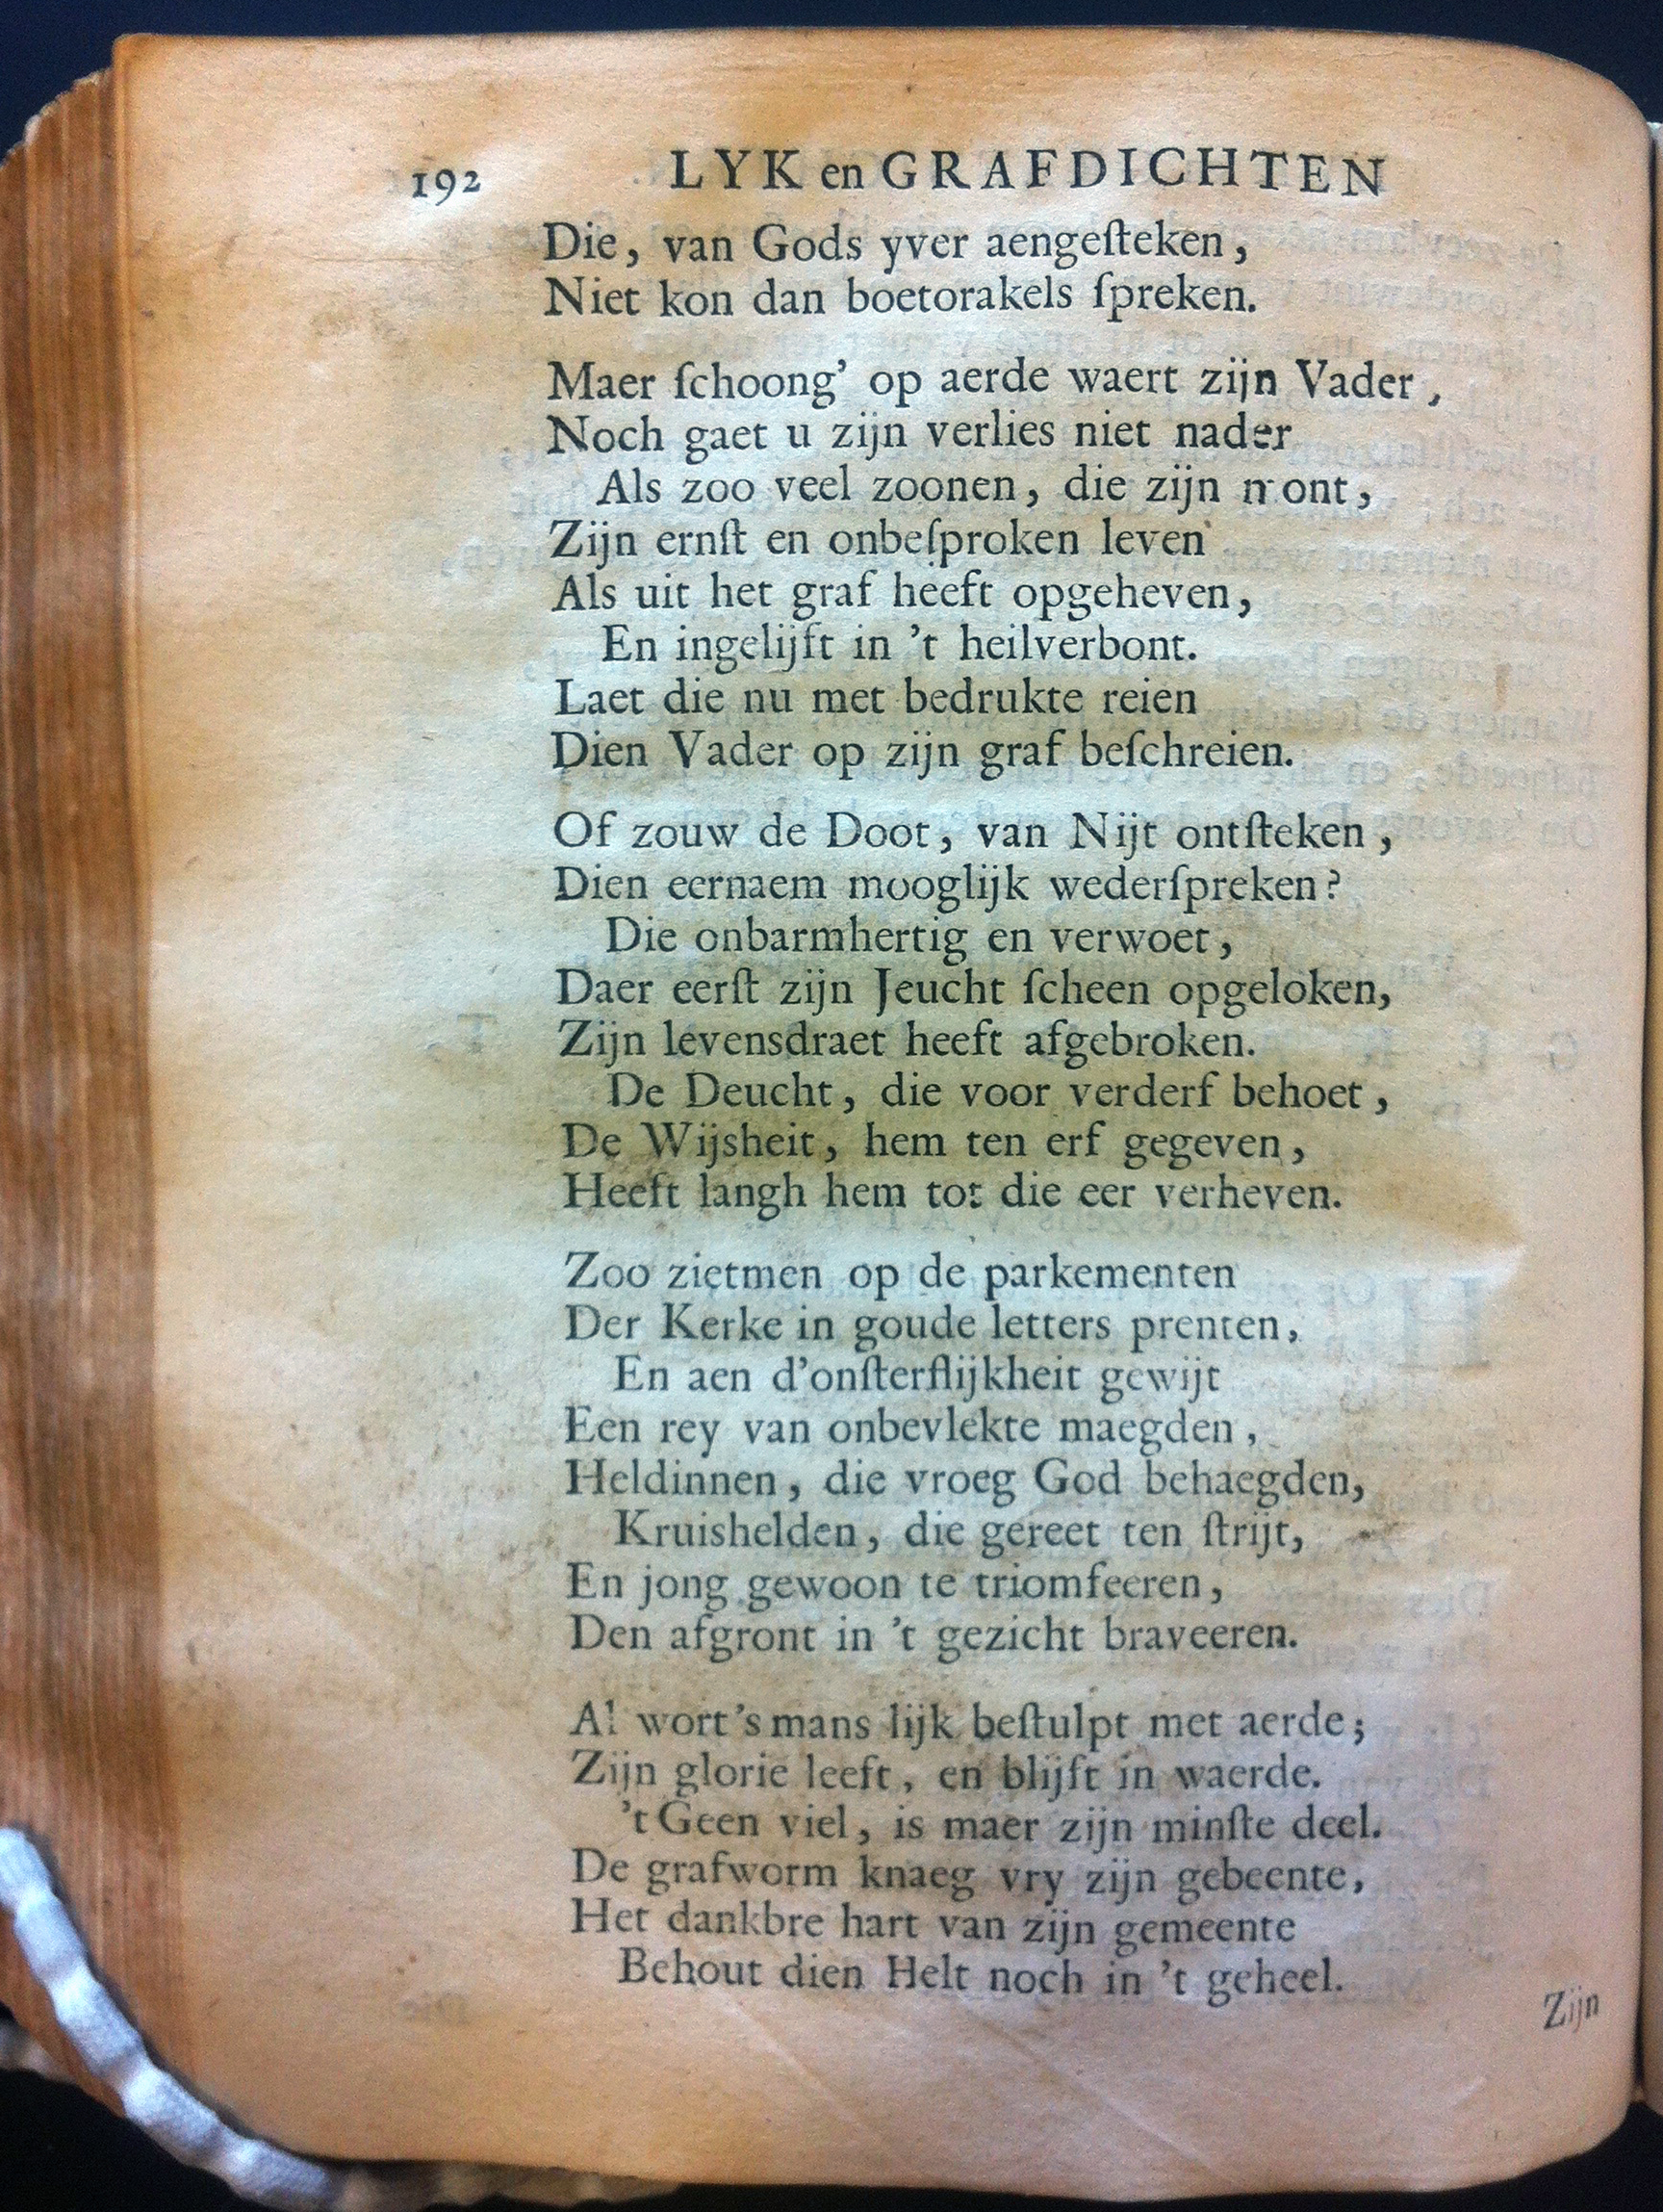 192 LYK en GRAFDICHTEN
Die, van Gods yver aengeſteken,
Niet kon dan boetorakels ſpreken.
Maer ſchoong' op aerde waert zijn Vader,
Noch gaet u zijn verlies niet nader
Als zoo veel zoonen, die zijn mont,
Zijn ernſt en onbeſproken leven
Als uit het graf heeft opgeheven,
En ingelijft in 't heilverbont.
Laet die nu met bedrukte reien
Dien Vader op zijn graf beſchreien.
Of zouw de Doot, van Nijt ontſteken,
Dien eernaem mooglijk wederſpreken?
Die onbarmhertig en verwoet,
Daer eerſt zijn Jeucht ſcheen opgeloken,
Zijn levensdraet heeft afgebroken.
De Deucht, die voor verderf behoet,
De Wijsheit, hem ten erf gegeven,
Heeft langh hem tot die eer verheven.
Zoo zietmen op de parkementen
Der Kerke in goude letters prenten,
En aen d'onſterflijkheit gewijt
Een rey van onbevlekte maegden,
Heldinnen, die vroeg God behaegden,
Kruishelden, die gereet ten ſtrijt,
En jong gewoon te triomfeeren,
Den afgront in 't gezicht braveeren.
Al wort 's mans lijk beſtulpt met aerde;
Zijn glorie leeft, en blijft in waerde.
't Geen viel, is maer zijn minſte deel.
De grafworm knaeg vry zijn gebeente,
Het dankbre hart van zijn gemeente
Behout dien Helt noch in 't geheel.
Zijn